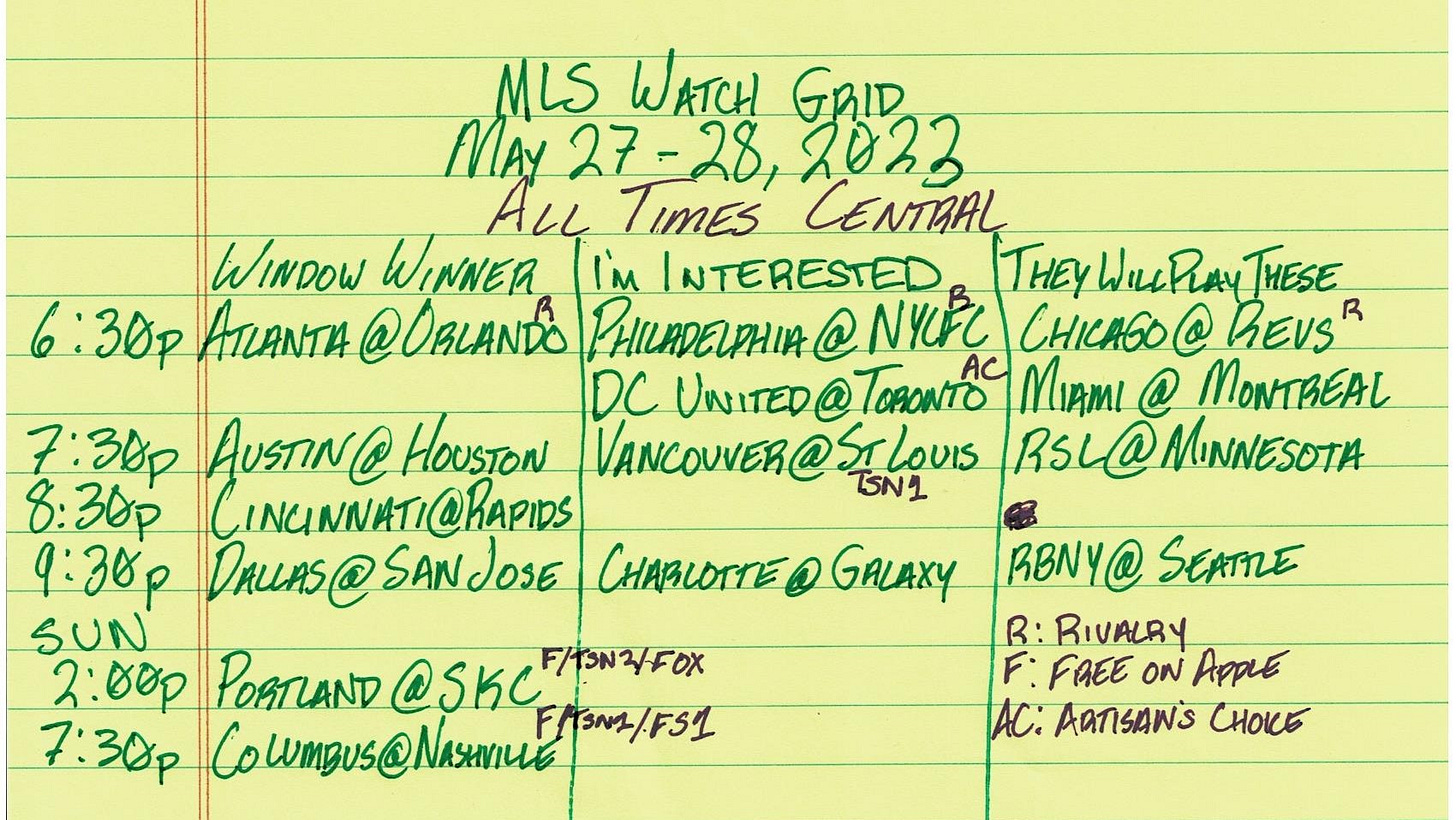 MLS WATCH GRID
MAY 27-28, 2023
ALL TIMES CENTRAL
WINDOW WINNER I'm INTERESTED THEY WILL PLAY THESE
6:30p ATLANTA @ ORLANDO R PHILADELPHIA @ NYCFC R CHICAGO @ REVS R
DC UNITED @ TORONTO AC MIAMI @ MONTREAL
7:30p AUSTIN @ HOUSTON VANCOUVER @ ST LOUIS TSN1 RSL @ MINNESOTA
8:30p CINCINNATI @ RAPIDS
9:30p DALLAS @ SAN JOSE CHARLOTTE @ GALAXY RBNY @ SEATTLE
SUN
2:00p PORTLAND @ SKC F/TSN2/FOX
7:30p COLUMBUS @ NASHVILLE F/TSN1/FS1
R: RIVALRY
F: FREE ON APPLE
AC: ARTISAN'S CHOICE